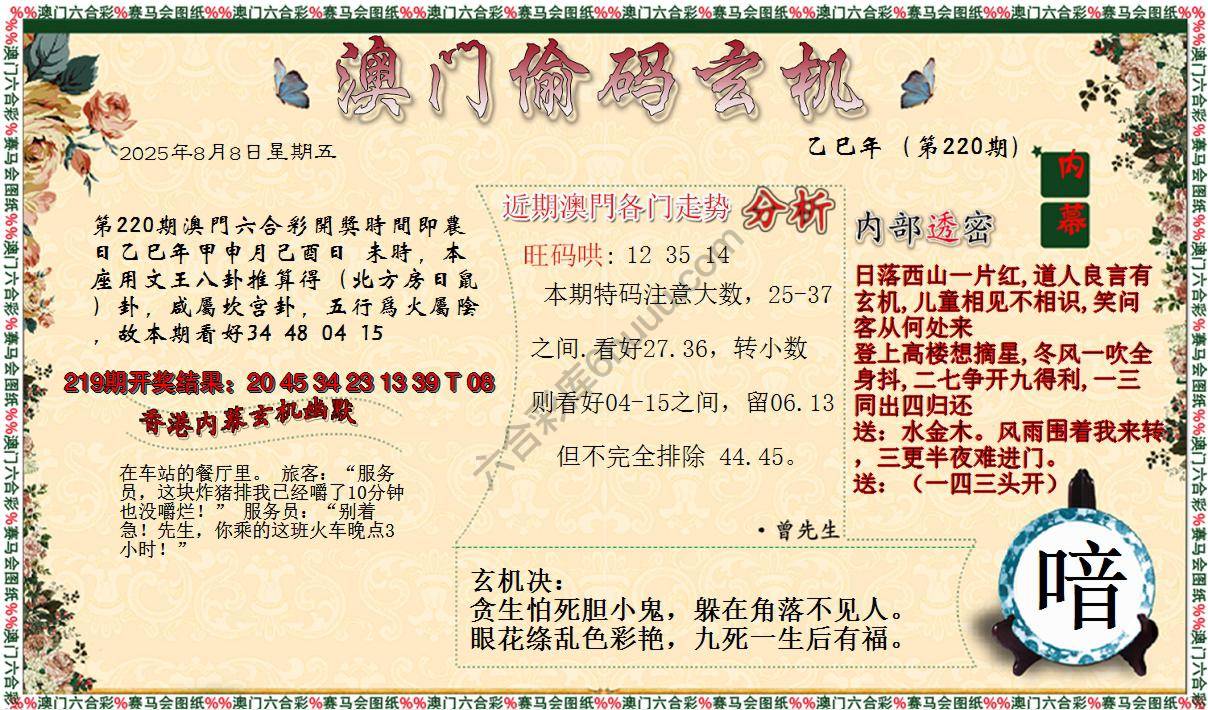 %%澳门六合彩%赛马会图纸%%澳门六合彩%赛马会图纸%%澳门六合彩%赛马会图纸%%澳门六合彩%赛马会图纸%%澳门六合彩%赛马会图纸%%澳门六合彩%赛马会图纸%%
澳门偷码玄机
2025年8月8日星期五
乙巳年（第220期）
内幕
第220期澳門六合彩開獎時間即農
日乙巳年甲申月己酉日 未時，本
座用文王八卦推算得（北方房日鼠
）卦，咸屬坎宫卦，五行爲火屬陰
，故本期看好34 48 04 15
219期开奖结果：20 45 34 23 13 39 T 08
香港内幕玄机幽默
在车站的餐厅里。 旅客：“服务
员，这块炸猪排我已经嚼了10分钟
也没嚼烂！” 服务员：“别着
急！先生，你乘的这班火车晚点3
小时！”
近期澳門各门走势 分析
旺码哄: 12 35 14
本期特码注意大数，25-37
之间.看好27.36，转小数
则看好04-15之间，留06.13
但不完全排除 44.45。
·曾先生
内部透密
日落西山一片红,道人良言有
玄机,儿童相见不相识,笑问
客从何处来
登上高楼想摘星,冬风一吹全
身抖,二七争开九得利,一三
同出四归还
送：水金木。风雨围着我来转
，三更半夜难进门。
送：（一四三头开）
玄机决：
贪生怕死胆小鬼，躲在角落不见人。
眼花绦乱色彩艳，九死一生后有福。
喑